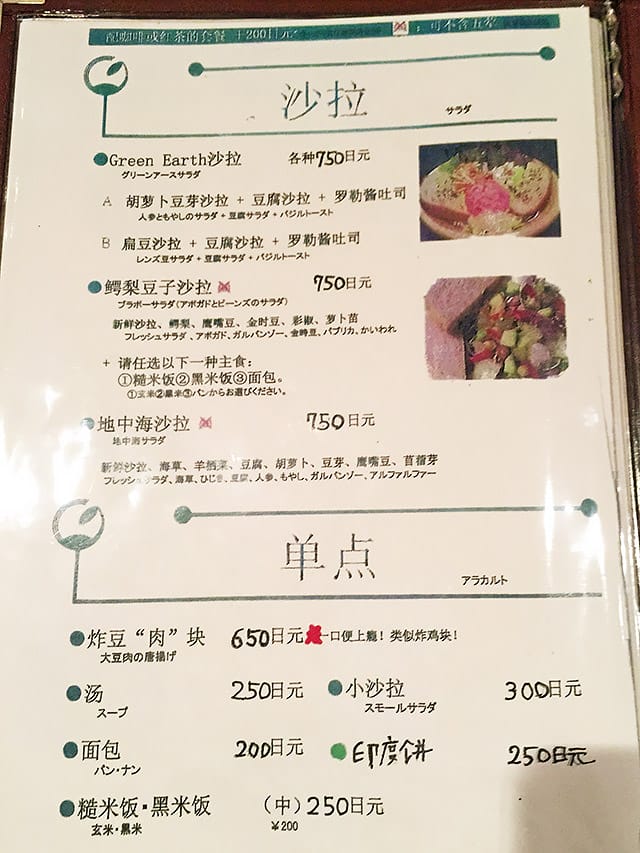 配咖啡或红茶的套餐 +200日元
：可不含五荤
沙拉 サラダ
Green Earth沙拉 各种750日元
グリーンアースサラダ
A 胡萝卜豆芽沙拉 + 豆腐沙拉 + 罗勒酱吐司
人参ともやしのサラダ + 豆腐サラダ + バジルトースト
B 扁豆沙拉 + 豆腐沙拉 + 罗勒酱吐司
レンズ豆サラダ + 豆腐サラダ + バジルトースト
鳄梨豆子沙拉 750日元
ブラボーサラダ(アボガドとビーンズのサラダ)
新鲜沙拉、鳄梨、鹰嘴豆、金时豆、彩椒、萝卜苗
フレッシュサラダ、アボガド、ガルバンゾー、金時豆、パプリカ、かいわれ
+ 请任选以下一种主食：
①糙米饭②黑米饭③面包。
①玄米②黒米③パンからお選びください。
地中海沙拉 750日元
地中海サラダ
新鲜沙拉、海草、羊栖菜、豆腐、胡萝卜、豆芽、鹰嘴豆、苜蓿芽
フレッシュサラダ、海草、ひじき、豆腐、人参、もやし、ガルバンゾー、アルファルファー
单点 アラカルト
炸豆“肉”块 650日元 一口便上瘾！类似炸鸡块！
大豆肉の唐揚げ
汤 250日元 小沙拉 300日元
スープ スモールサラダ
面包 200日元 印度饼 250日元
パン・ナン
糙米饭・黑米饭 （中）250日元
玄米・黒米 ¥200